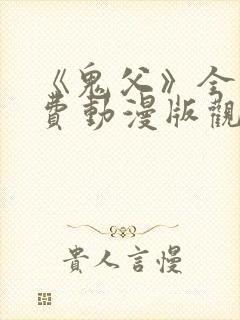 《鬼父》全
費動漫版觀
貴人言慢